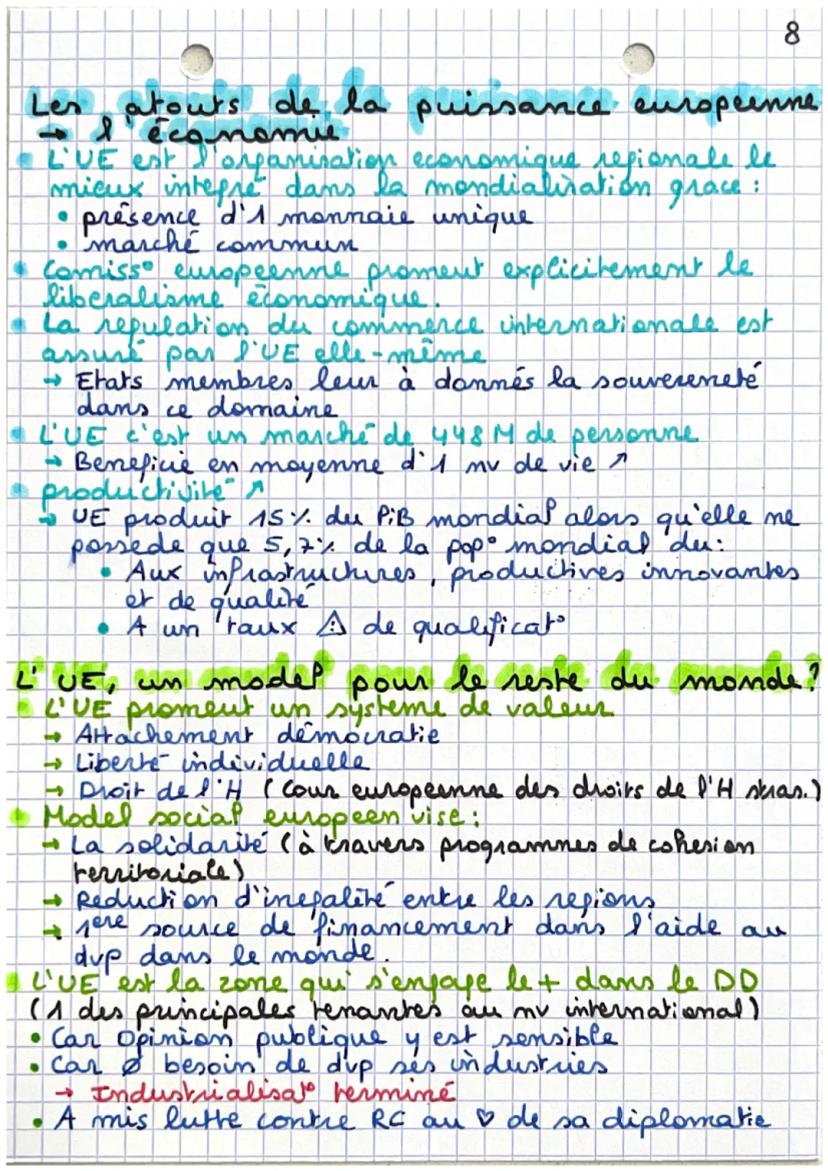 8
Les atouts de la puissance europeenne
→ l'économie
• L'UE est l'organisation economique regionale le
mieux integré dans la mondialisation grace :
• présence d'1 monnaie unique
• marché commun
• Comiss° europeenne promeut explicitement le
liberalisme économique.
• La regulation du commerce internationale est
assuré par l'UE elle-même
→ Etats membres leur à donnés la souvereneté
dans ce domaine
• L'UE c'est un marché de 448 M de personne
→ Beneficie en moyenne d'1 nv de vie ↗
• productivité ↗
→ UE produit 15% du PiB mondial alors qu'elle ne
possede que 5,7% de la pop° mondial du:
• Aux infrastructures, productives innovantes
et de qualité
• A un taux ⚠ de qualificat°
L'UE, un model pour le reste du monde?
• L'UE promeut un systeme de valeur
→ Attachement démocratie
→ Liberté individuelle
→ Droit de l'H (Cour europeenne des droits de l'H stras.)
• Model social europeen vise:
→ La solidarité (à travers programmes de cohesion
territoriale)
→ Reduction d'inegalité entre les regions
→ 1ere source de financement dans l'aide au
dvp dans le monde.
• L'UE est la zone qui s'engage le + dans le DD
(1 des principales tenantes au nv international)
• Car Opinion publique y est sensible
• Car Ø besoin de dvp ses industries
→ Industrialisat° terminé
• A mis lutte contre RC au ♡ de sa diplomatie